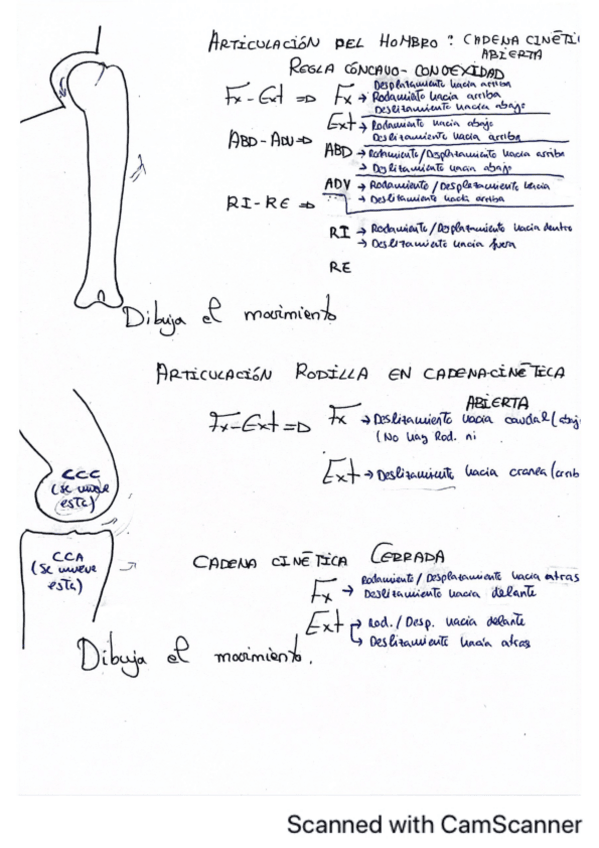 ARTICULACIÓN DEL HOMBRO: CADENA CINÉTI
ABIERTA
REGLA CÓNCAVO-CONVEXIDAD
Fx-Ext => Fx → Desplazamiento hacia arriba
Rodamiento hacia arriba
Deslizamiento hacia abajo
Ext → Rodamiento hacia abajo
Deslizamiento hacia arriba
ABD-ADU => ABD → Rodamiento/Desplazamiento hacia arriba
→ Deslizamiento hacia abajo
ADU → Rodamiento/Desplazamiento hacia
→ Deslizamiento hacia arriba
RI-RE =>
RI → Rodamiento/Desplazamiento hacia dentro
→ Deslizamiento hacia fuera
RE
Dibuja el movimiento
ARTICULACIÓN RODILLA EN CADENA CINÉTICA
ABIERTA
Fx-Ext => Fx → Deslizamiento hacia caudal (abaj
(No hay Rod. ni
Ext → Deslizamiento hacia cranea (arrib
CCC
(se mueve
este)
CCA
(se mueve
este)
CADENA CINÉTICA CERRADA
Fx → Rodamiento/Desplazamiento hacia atras
Deslizamiento hacia delante
Ext → Rod./Desp. hacia delante
→ Deslizamiento hacia atras
Dibuja el movimiento.
Scanned with CamScanner